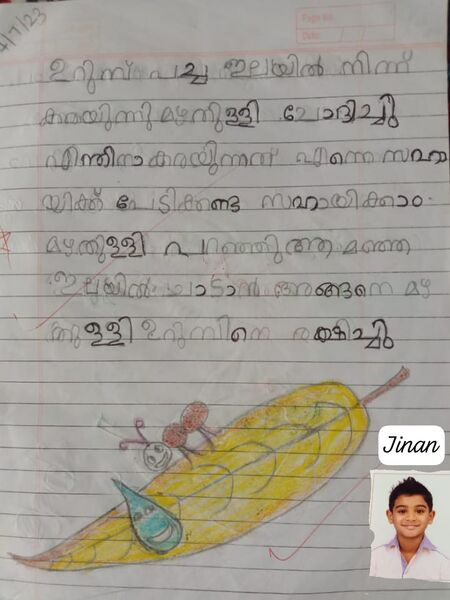 4/7/23
Page No.
Date: / /
ഉറുമ്പ് പച്ച ഇലയിൽ നിന്ന്
കരയുന്നു മഴതുള്ളി ചോദിച്ചു
എന്തിനാ കരയുന്നത് എന്നെ സഹാ
യിക്ക് പേടിക്കണ്ട സഹായിക്കാം.
മഴതുള്ളി പറഞ്ഞു ആ മഞ്ഞ
ഇലയിൽ ചാടാൻ അങ്ങനെ മഴ
ത്തുള്ളി ഉറുമ്പിനെ രക്ഷിച്ചു
Jinan